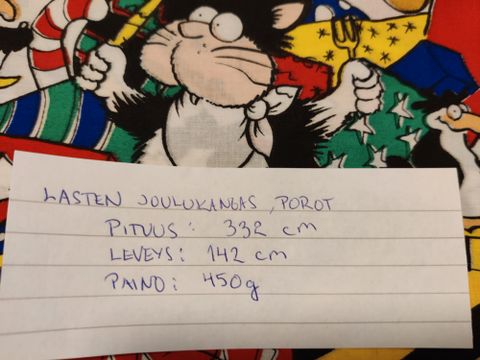 LASTEN JOULUKANGAS, POROT
PITUUS: 332 cm
LEVEYS: 142 cm
PAINO: 450g